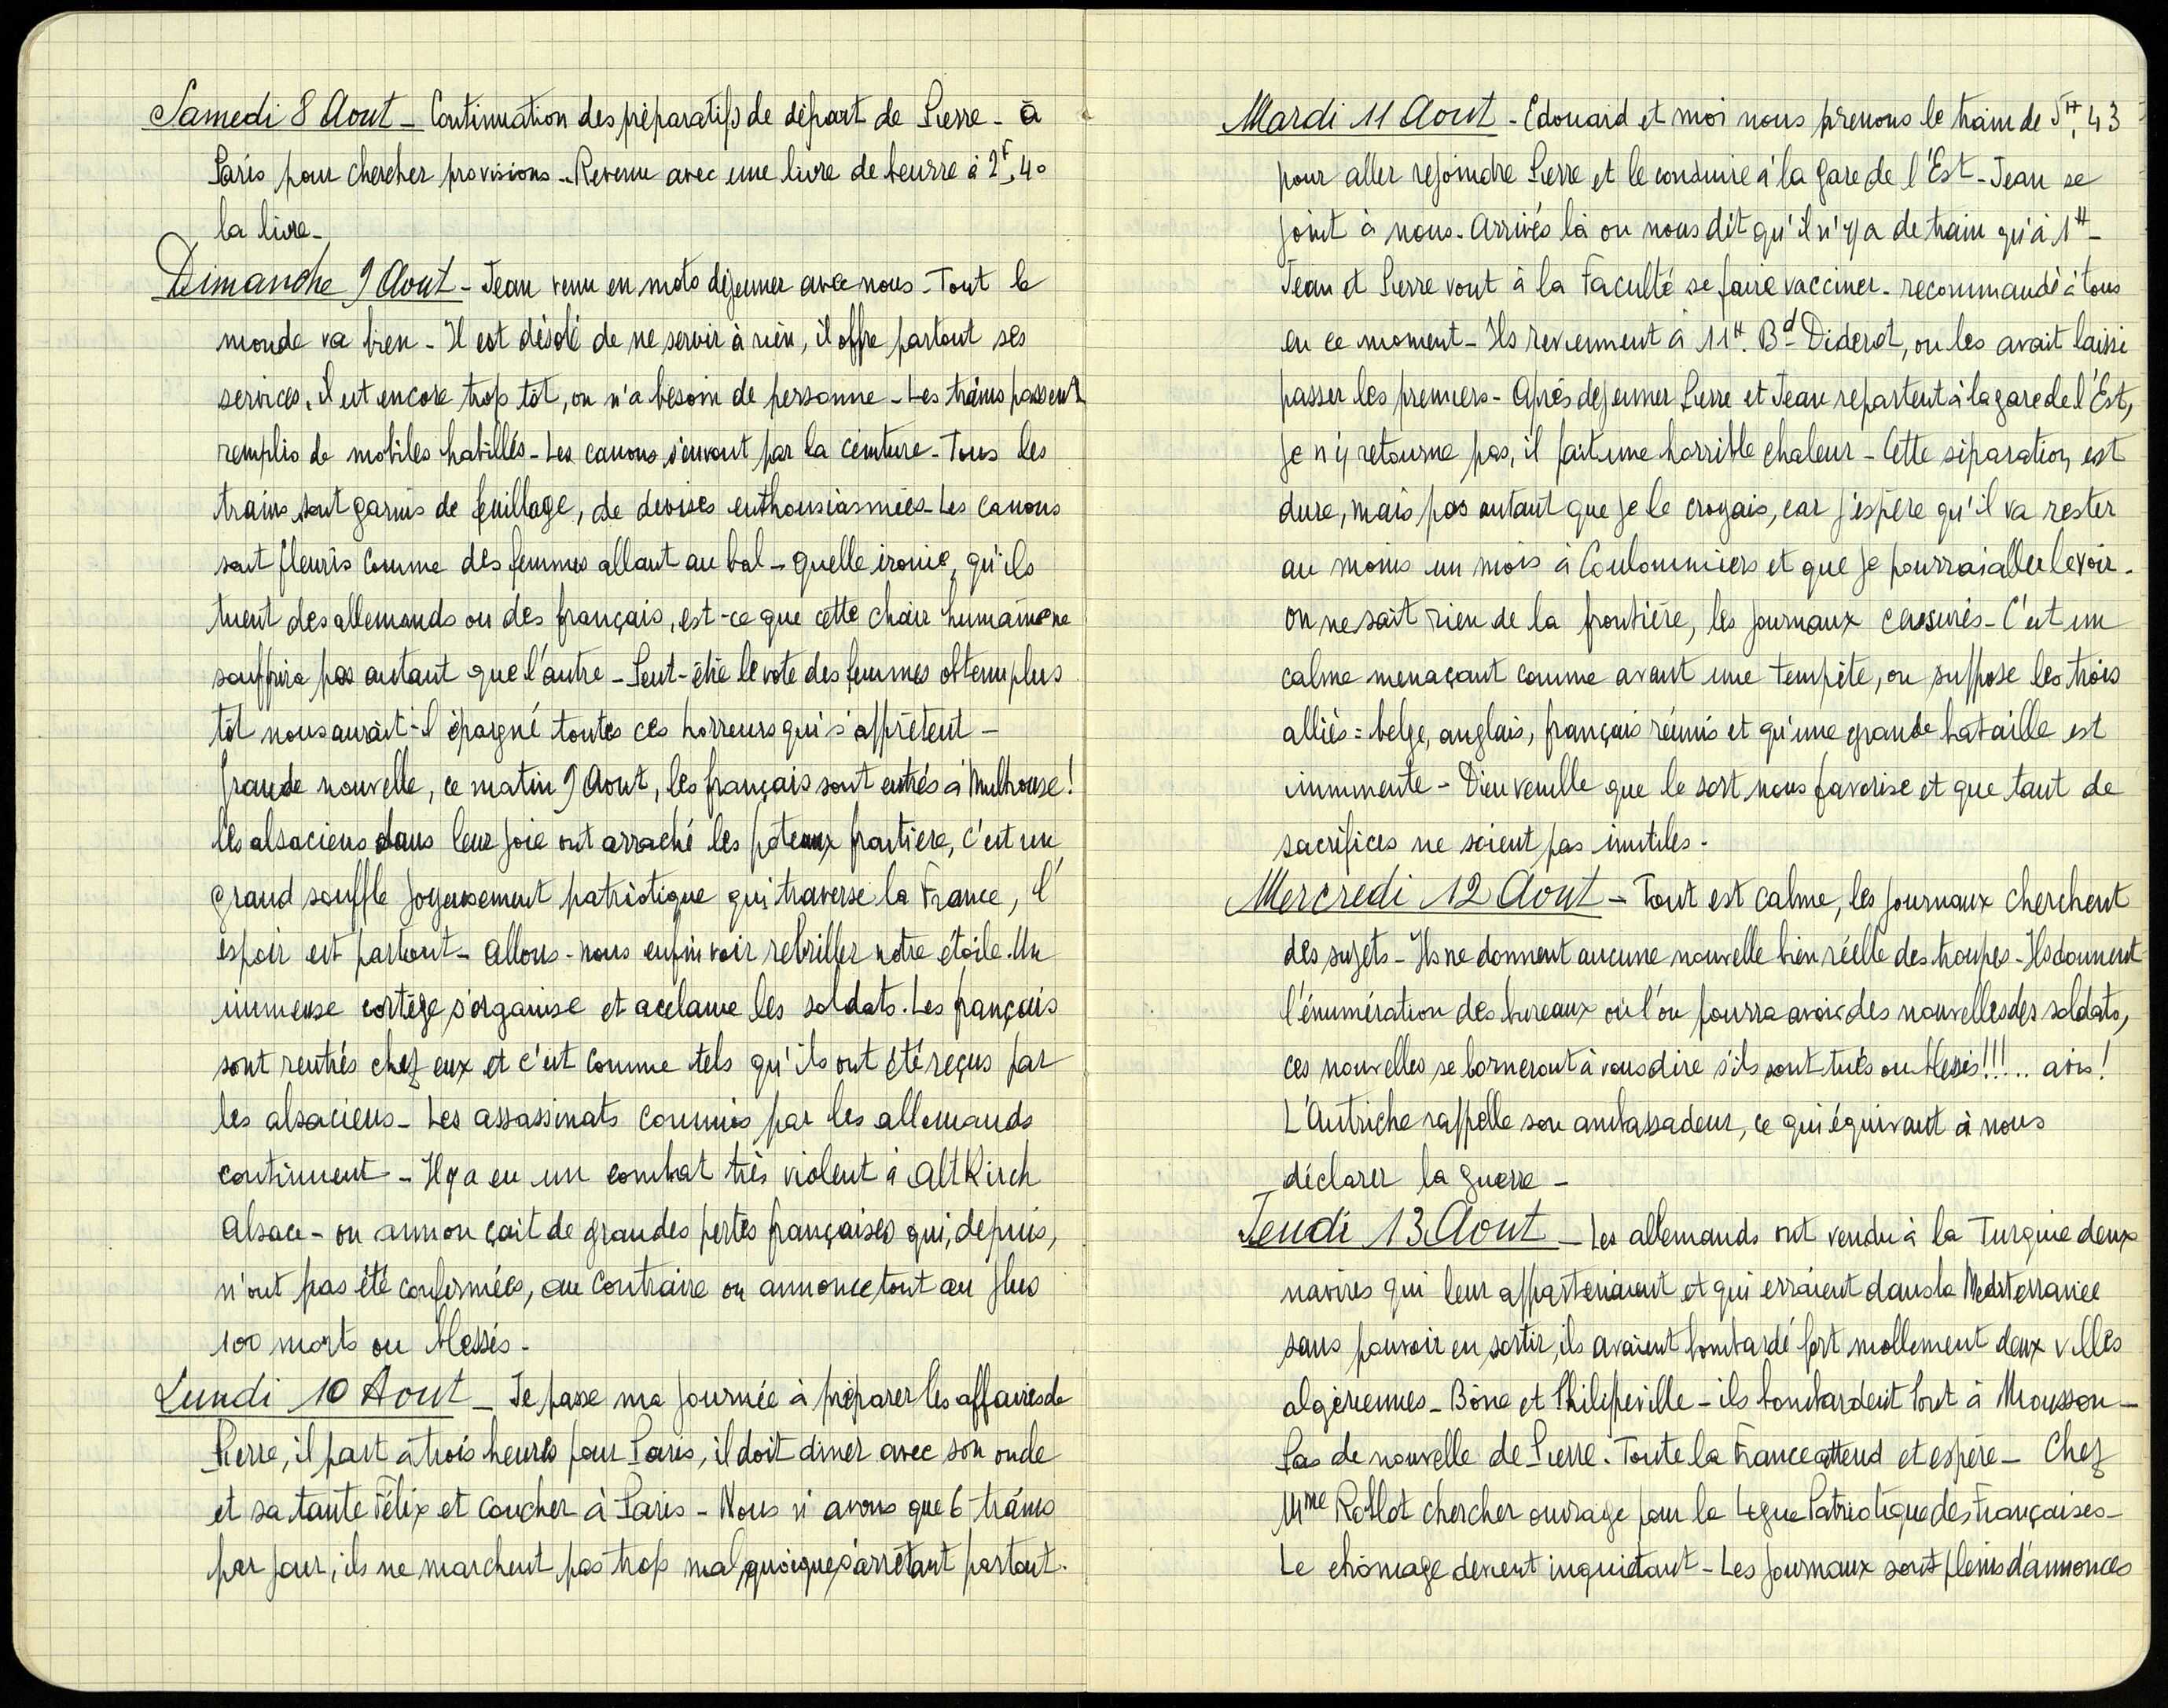 Samedi 8 Aout - Continuation des préparatifs de départ de Pierre - à
Paris pour chercher provisions - Revenue avec une livre de beurre à 2F,40
la livre -
Dimanche 9 Aout - Jean venu en moto déjeuner avec nous - Tout le
monde va bien - Il est désolé de ne servir à rien, il offre partout ses
services, il est encore trop tôt, on n'a besoin de personne - Les trains passent
remplis de mobiles habillés - Les canons s'en vont par la ceinture - Tous les
trains sont garnis de feuillage, de devises enthousiasmées - Les canons
sont fleuris comme des femmes allant au bal - quelle ironie, qu'ils
tuent des allemands ou des français, est-ce que cette chair humaine ne
souffrira pas autant que l'autre - Peut-être le vote des femmes obtenu plus
tôt nous aurait-il épargné toutes ces horreurs qui s'apprêtent -
Grande nouvelle, ce matin 9 Aout, les français sont entrés à Mulhouse !
les alsaciens dans leur joie ont arraché les poteaux frontière, c'est un
grand souffle joyeusement patriotique qui traverse la France, l'
espoir est partout - Allons-nous enfin voir rebriller notre étoile. Un
immense cortège s'organise et acclame les soldats. Les français
sont rentrés chez eux et c'est comme tels qu'ils ont été reçus par
les alsaciens - Les assassinats commis par les allemands
continuent - Il y a eu un combat très violent à AltKirch
Alsace - on annonçait de grandes pertes françaises qui, depuis,
n'ont pas été confirmées, au contraire on annonce tout au plus
100 morts ou blessés -
Lundi 10 Aout - Je passe ma journée à préparer les affaires de
Pierre, il part à trois heures pour Paris, il doit diner avec son oncle
et sa tante Félix et coucher à Paris - Nous n'avons que 6 trains
par jour, ils ne marchent pas trop mal quoique s'arrêtant partout.
Mardi 11 Aout - Edouard et moi nous prenons le train de 5H,43
pour aller rejoindre Pierre et le conduire à la gare de l'Est - Jean se
joint à nous - Arrivés là on nous dit qu'il n'y a de train qu'à 1H -
Jean et Pierre vont à la Faculté se faire vacciner - recommandé à tous
en ce moment - Ils reviennent à 11H. Bd Diderot, on les avait laissé
passer les premiers - Après déjeuner Pierre et Jean repartent à la gare de l'Est,
je n'y retourne pas, il fait une horrible chaleur - Cette séparation est
dure, mais pas autant que je le croyais, car j'espère qu'il va rester
au moins un mois à Coulommiers et que je pourrai aller le voir -
on ne sait rien de la frontière, les journaux censurés - C'est un
calme menaçant comme avant une tempête, on suppose les trois
alliés : belge, anglais, français réunis et qu'une grande bataille est
imminente - Dieu veuille que le sort nous favorise et que tant de
sacrifices ne soient pas inutiles -
Mercredi 12 Aout - Tout est calme, les journaux cherchent
des sujets - Ils ne donnent aucune nouvelle bien réelle des troupes - Ils donnent
l'énumération des bureaux où l'on pourra avoir des nouvelles des soldats,
ces nouvelles se borneront à vous dire s'ils sont tués ou blessés !!! .. avis !
L'Autriche rappelle son ambassadeur, ce qui équivaut à nous
déclarer la guerre -
Jeudi 13 Aout - Les allemands ont vendu à la Turquie deux
navires qui leur appartenaient et qui erraient dans la Mediterranée
sans pouvoir en sortir, ils avaient bombardé fort mollement deux villes
algériennes - Bône et Philipeville - ils bombardent Pont à Mousson -
Pas de nouvelle de Pierre. Toute la France attend et espère - Chez
Mme Rollot chercher ouvrage pour la Ligue Patriotique des Françaises -
Le chômage devient inquiétant - Les journaux sont pleins d'annonces